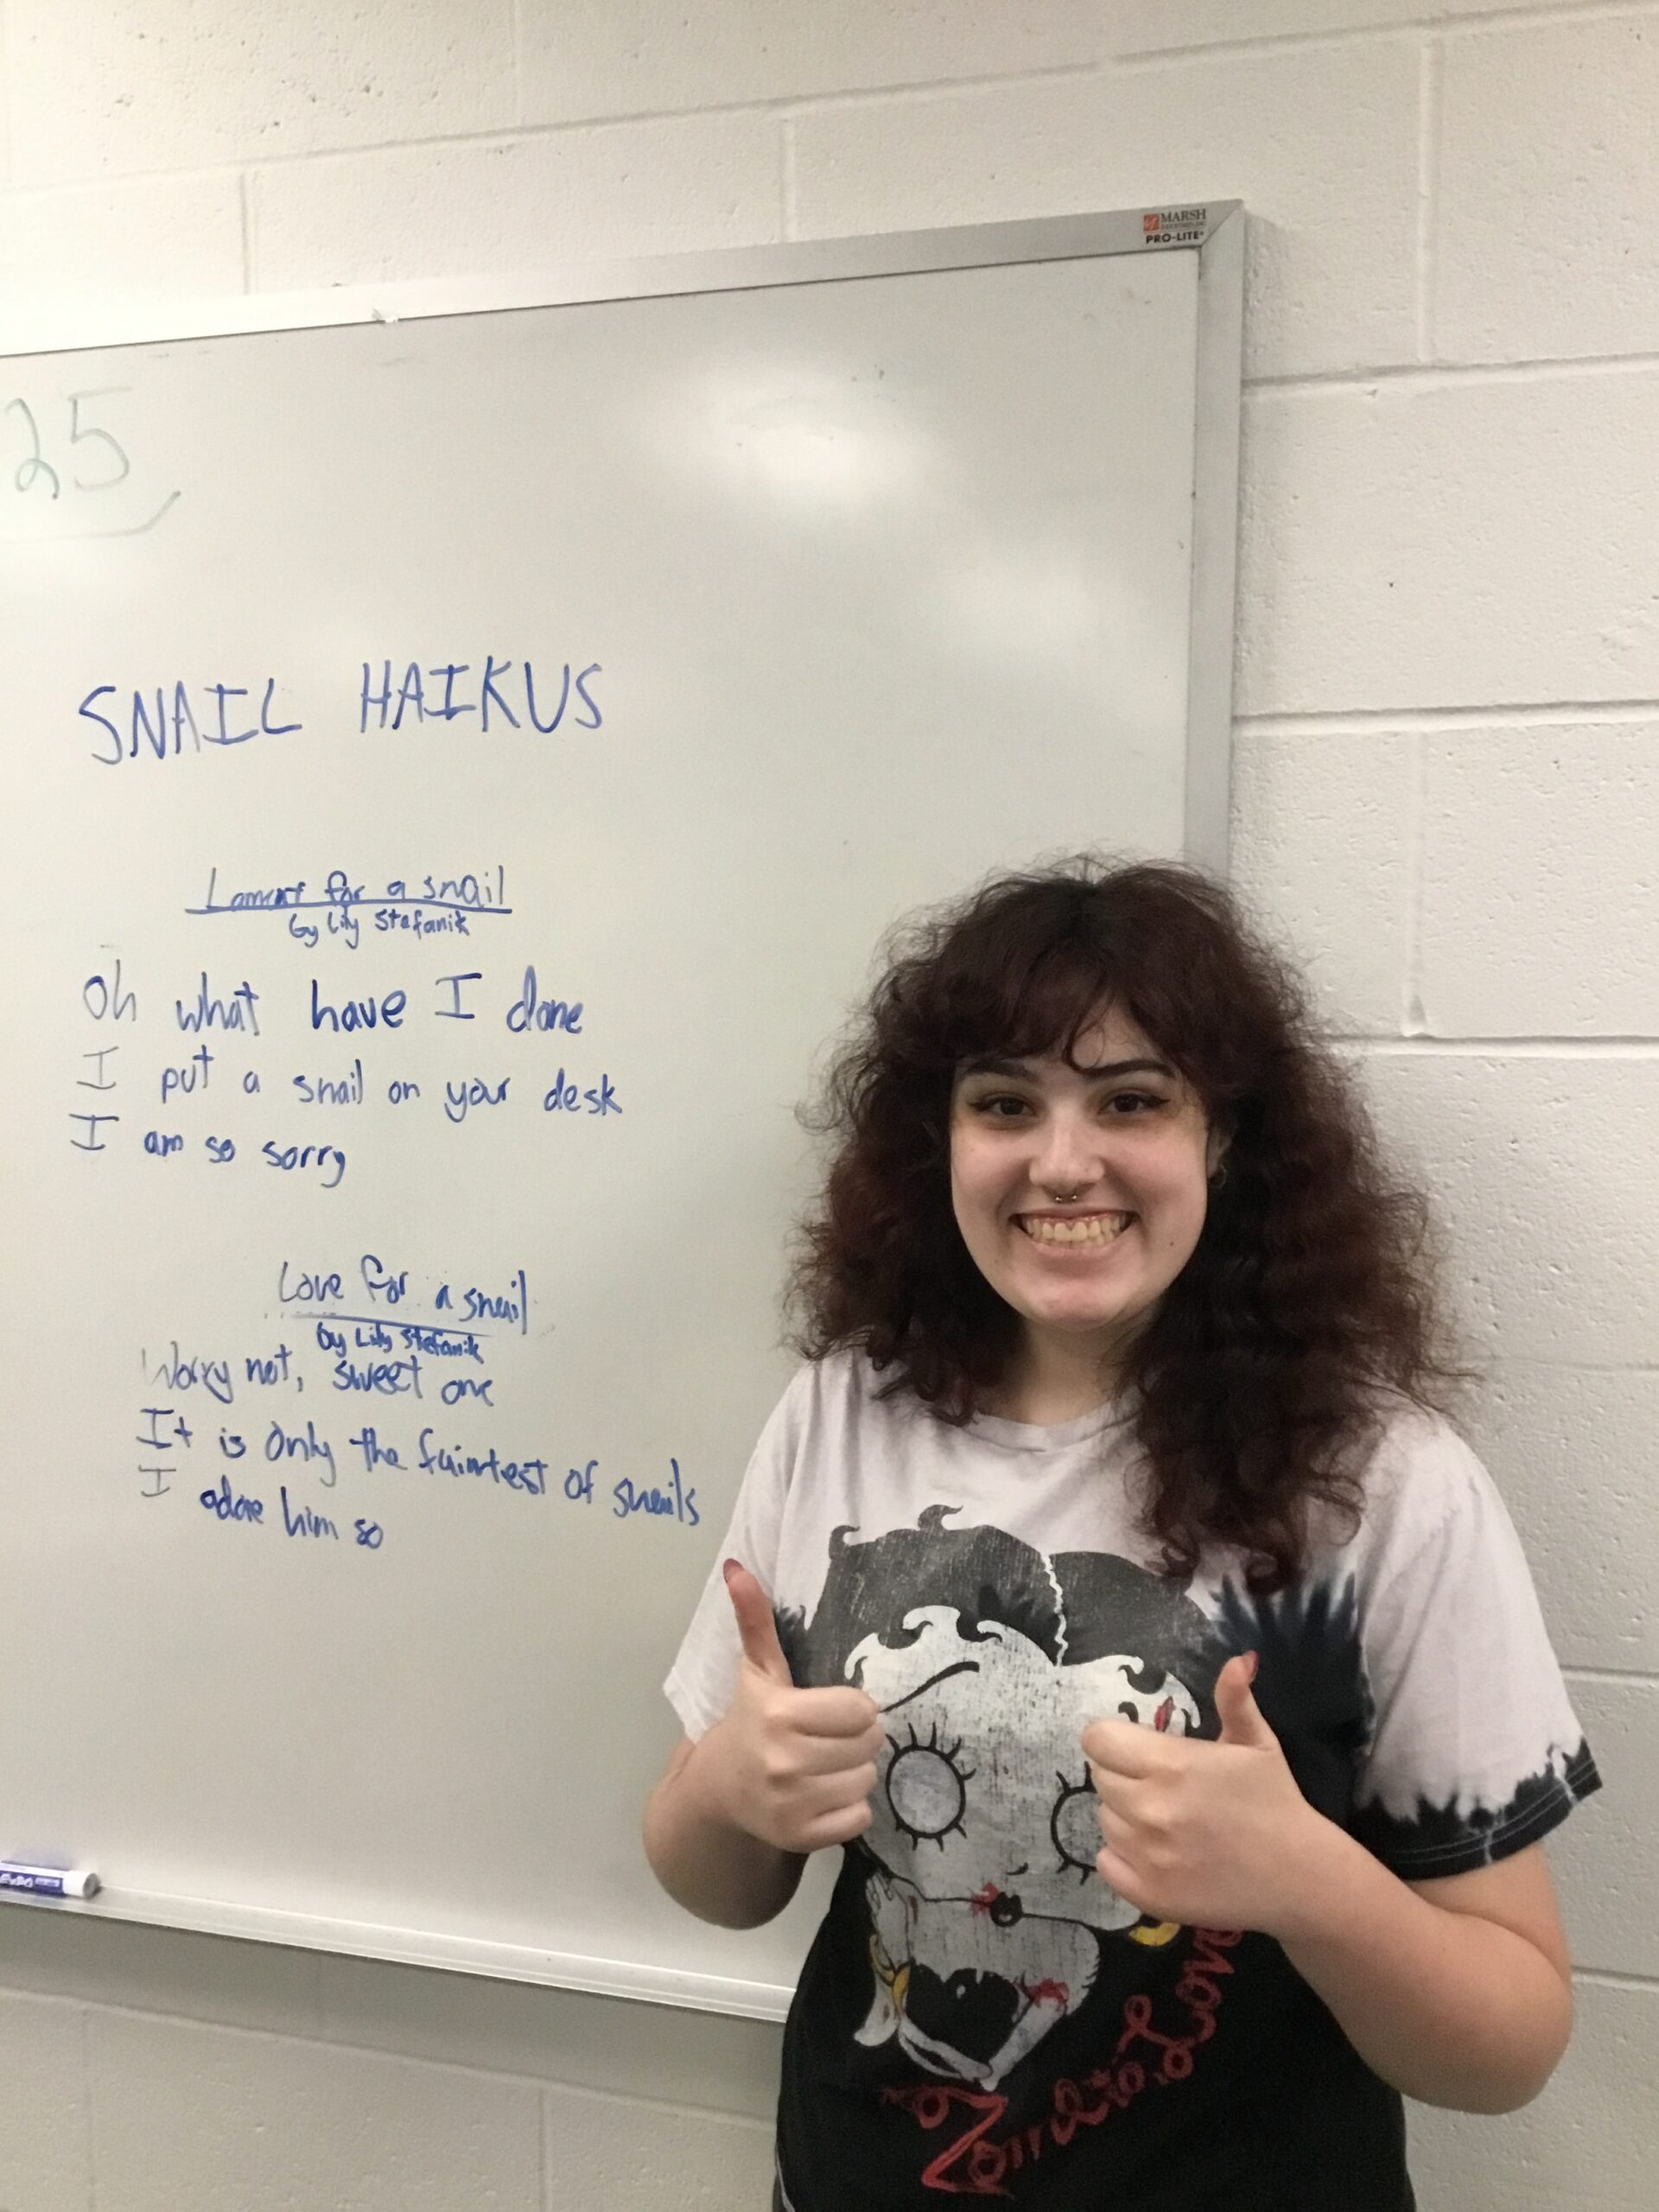 MARSH
PRO-LITE
25
SNAIL HAIKUS
Lament for a snail
by Lily Stefanik
Oh what have I done
I put a snail on your desk
I am so sorry
Love for a snail
by Lily Stefanik
Worry not, sweet one
It is only the faintest of snails
I adore him so
EXPO
Zombie Love